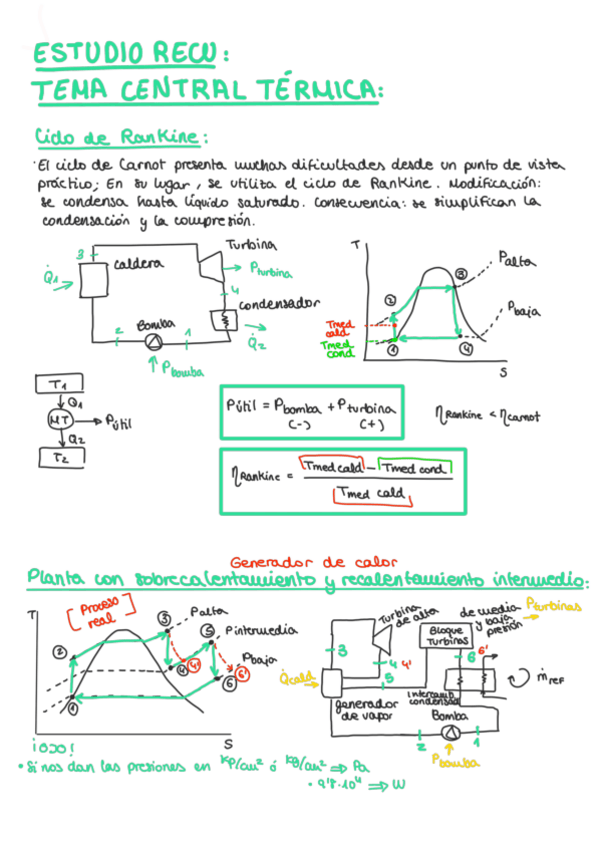 ESTUDIO RECU:
TEMA CENTRAL TÉRMICA:
Ciclo de Rankine:
· El ciclo de Carnot presenta muchas dificultades desde un punto de vista
práctico; En su lugar, se utiliza el ciclo de Rankine. Modificación:
se condensa hasta líquido saturado. Consecuencia: se simplifican la
condensación y la compresión.
3
Q̇1
caldera
Turbina
Pturbina
4
condensador
Q̇2
Bomba
2
1
Pbomba
T
Palta
3
2
Pbaja
Tmed
cald
Tmed
cond
1
4
S
T1
Q1
MT
Pútil
Q2
T2
Pútil = Pbomba + Pturbina
(-) (+)
ηRankine < ηCarnot
ηRankine = Tmed cald - Tmed cond
Tmed cald
Generador de calor
Planta con sobrecalentamiento y recalentamiento intermedio:
T
[Proceso
real]
3
Palta
5
Pintermedia
2
4
4'
Pbaja
6
6'
1
S
Turbina
de alta
de media
y baja
presión
Pturbinas
Bloque
Turbinas
3
4 4'
5
6
6'
Q̇cald
generador
de vapor
intercamb
condensad
ṁref
Bomba
2
1
Pbomba
¡OJO!
· Si nos dan las presiones en kp/cm² ó kg/cm² ⇒ Pa
· 9'8·10⁴ ⇒ W